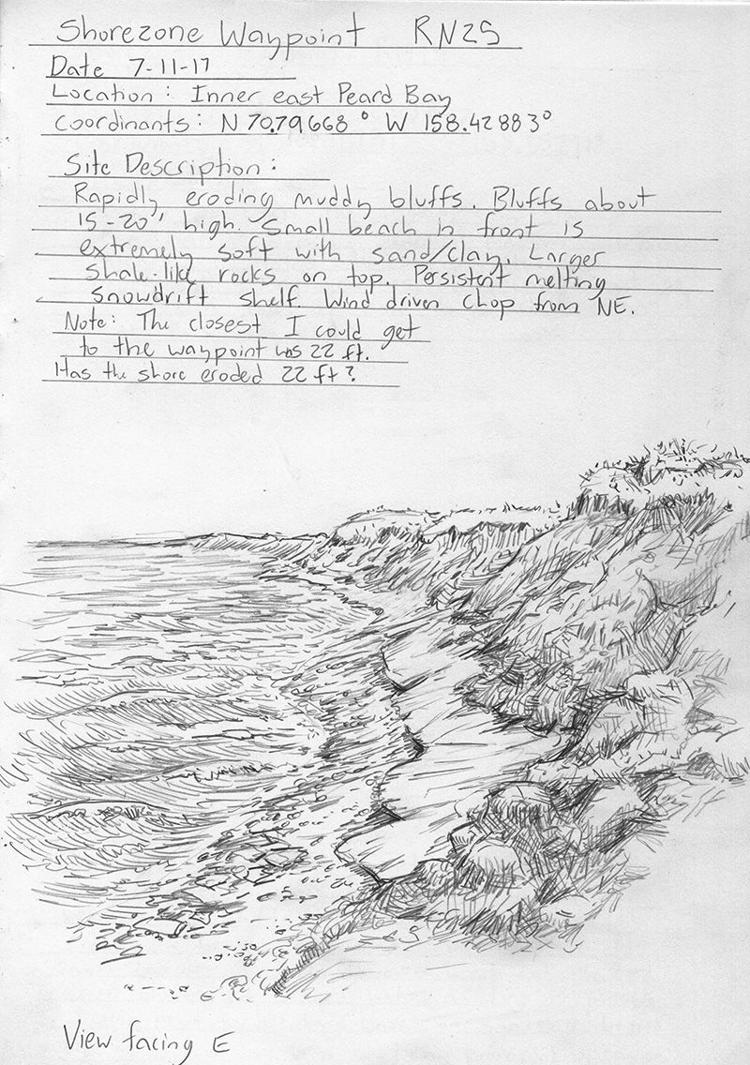 Shorezone Waypoint RN25
Date 7-11-17
Location: Inner east Peard Bay
Coordinants: N 70.79668° W 158.42883°
Site Description:
Rapidly eroding muddy bluffs. Bluffs about
15-20' high. Small beach in front is
extremely soft with sand/clay. Larger
shale-like rocks on top. Persistent melting
snowdrift shelf. Wind driven chop from NE.
Note: The closest I could get
to the waypoint was 22 ft.
Has the shore eroded 22 ft?
View facing E